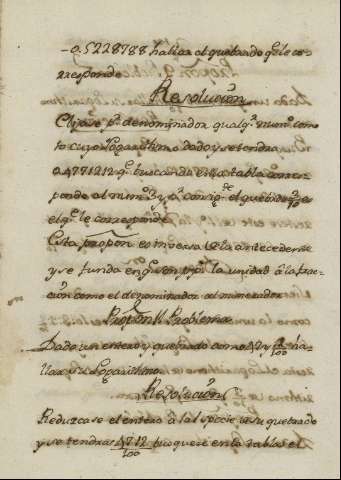 -0.5228788 hallar el quebrado qᵉ le co-
rresponde
Resolucion
Elijase pʳ denominador qualqᵃ numᵒ, como
to cuyo Logarithmo dado y se tendra
0.4771212 qᵉ buscando esta tabla corres
ponde al numᵒ 3 y pʳ consigᵗᵉ el quebrado 3/10 es
el qᵉ le corresponde
Esta propon es inversa de la antecedente
y se funda en qᵉ la unidad â la frac-
cion como el denominador al numerador
Propon 11 Problema
Dado un entero y quebrado como 47 y 12/100 ha-
llar su Logarithmo
Resolucion
Reduzcase el entero à la especie de su quebrado
y se tendrà 4712/100 busquese en la tablas el